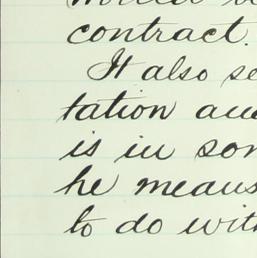 contract.
It also se
tation and
is in som
he means
to do with